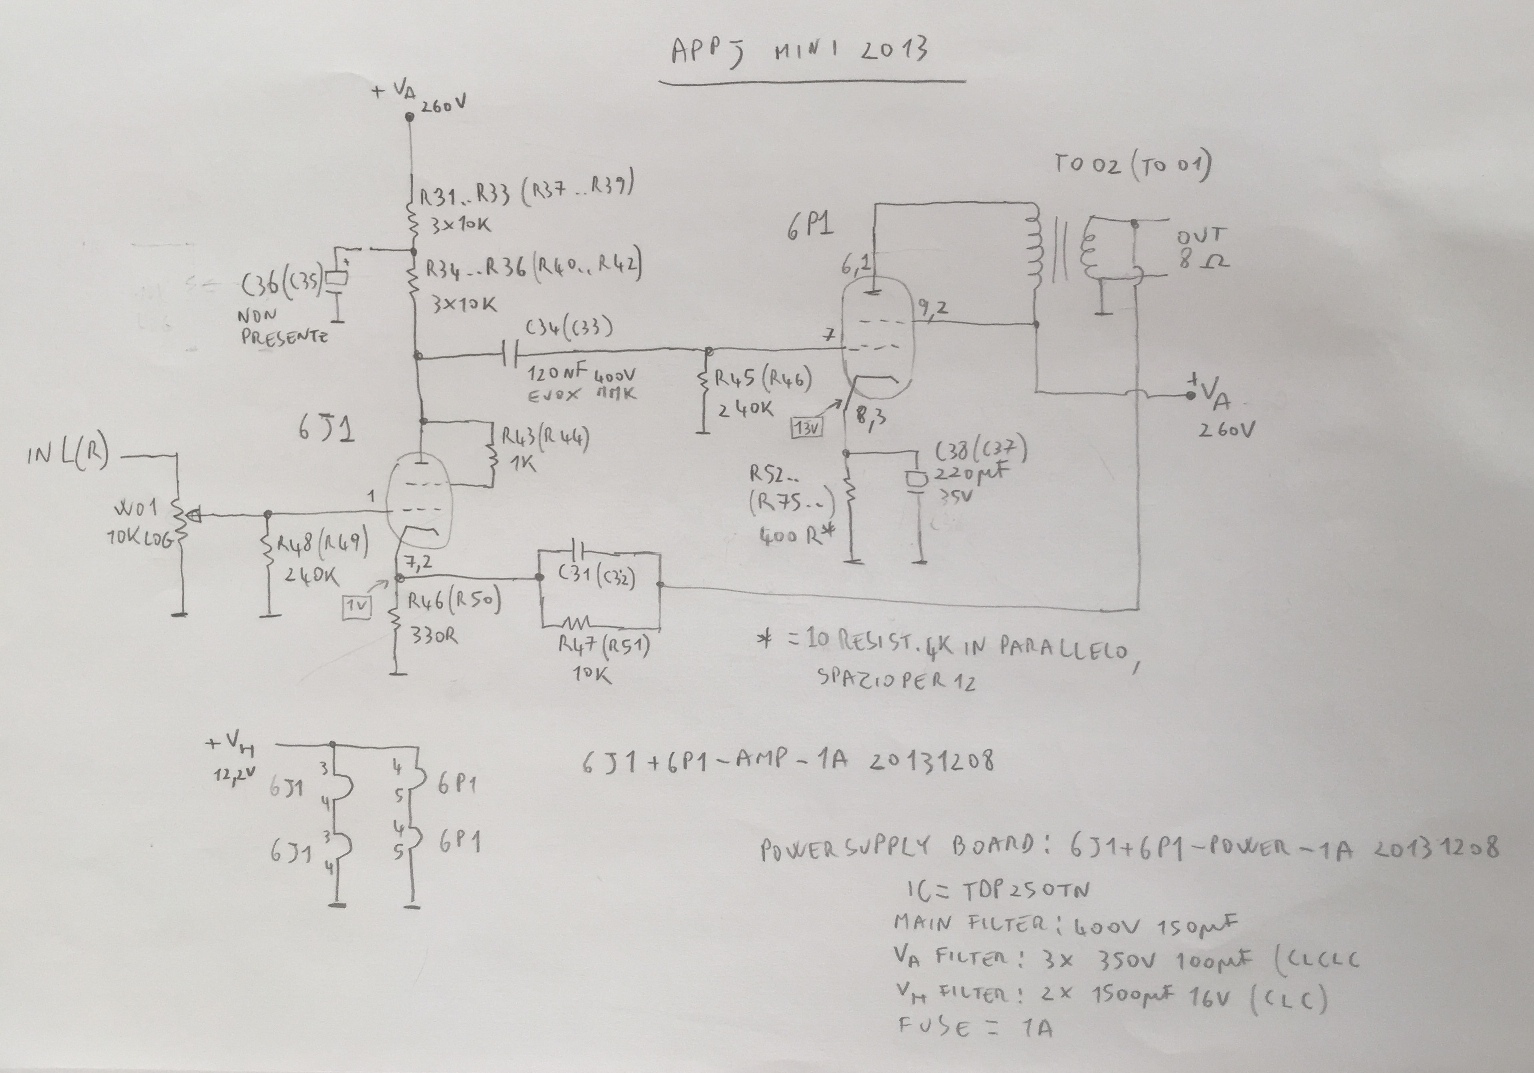 APPJ MINI 2013
+ VA
260V
R31..R33 (R37..R39)
3x10K
C36(C35)
+
NON
PRESENTE
R34..R36(R40..R42)
3X10K
C34(C33)
120NF 400V
EVOX MMK
R45(R46)
240K
6P1
6,1
9,2
7
8,3
13V
TO02(TO01)
OUT
8Ω
+VA
260V
C38(C37)
220µF
35V
R52..
(R75..)
400R*
6J1
R43(R44)
1K
IN L(R)
W01
10K LOG
1
R48(R49)
240K
7,2
1V
R46(R50)
330R
C31(C32)
R47(R51)
10K
* = 10 RESIST. 4K IN PARALLELO,
SPAZIO PER 12
+VH
12,2V
6J1 3 4
4 5 6P1
6J1 3 4
4 5 6P1
6J1+6P1-AMP-1A 20131208
POWER SUPPLY BOARD: 6J1+6P1-POWER-1A 20131208
IC= TOP250TN
MAIN FILTER: 400V 150µF
VA FILTER: 3x 350V 100µF (CLCLC
VH FILTER: 2x 1500µF 16V (CLC)
FUSE = 1A